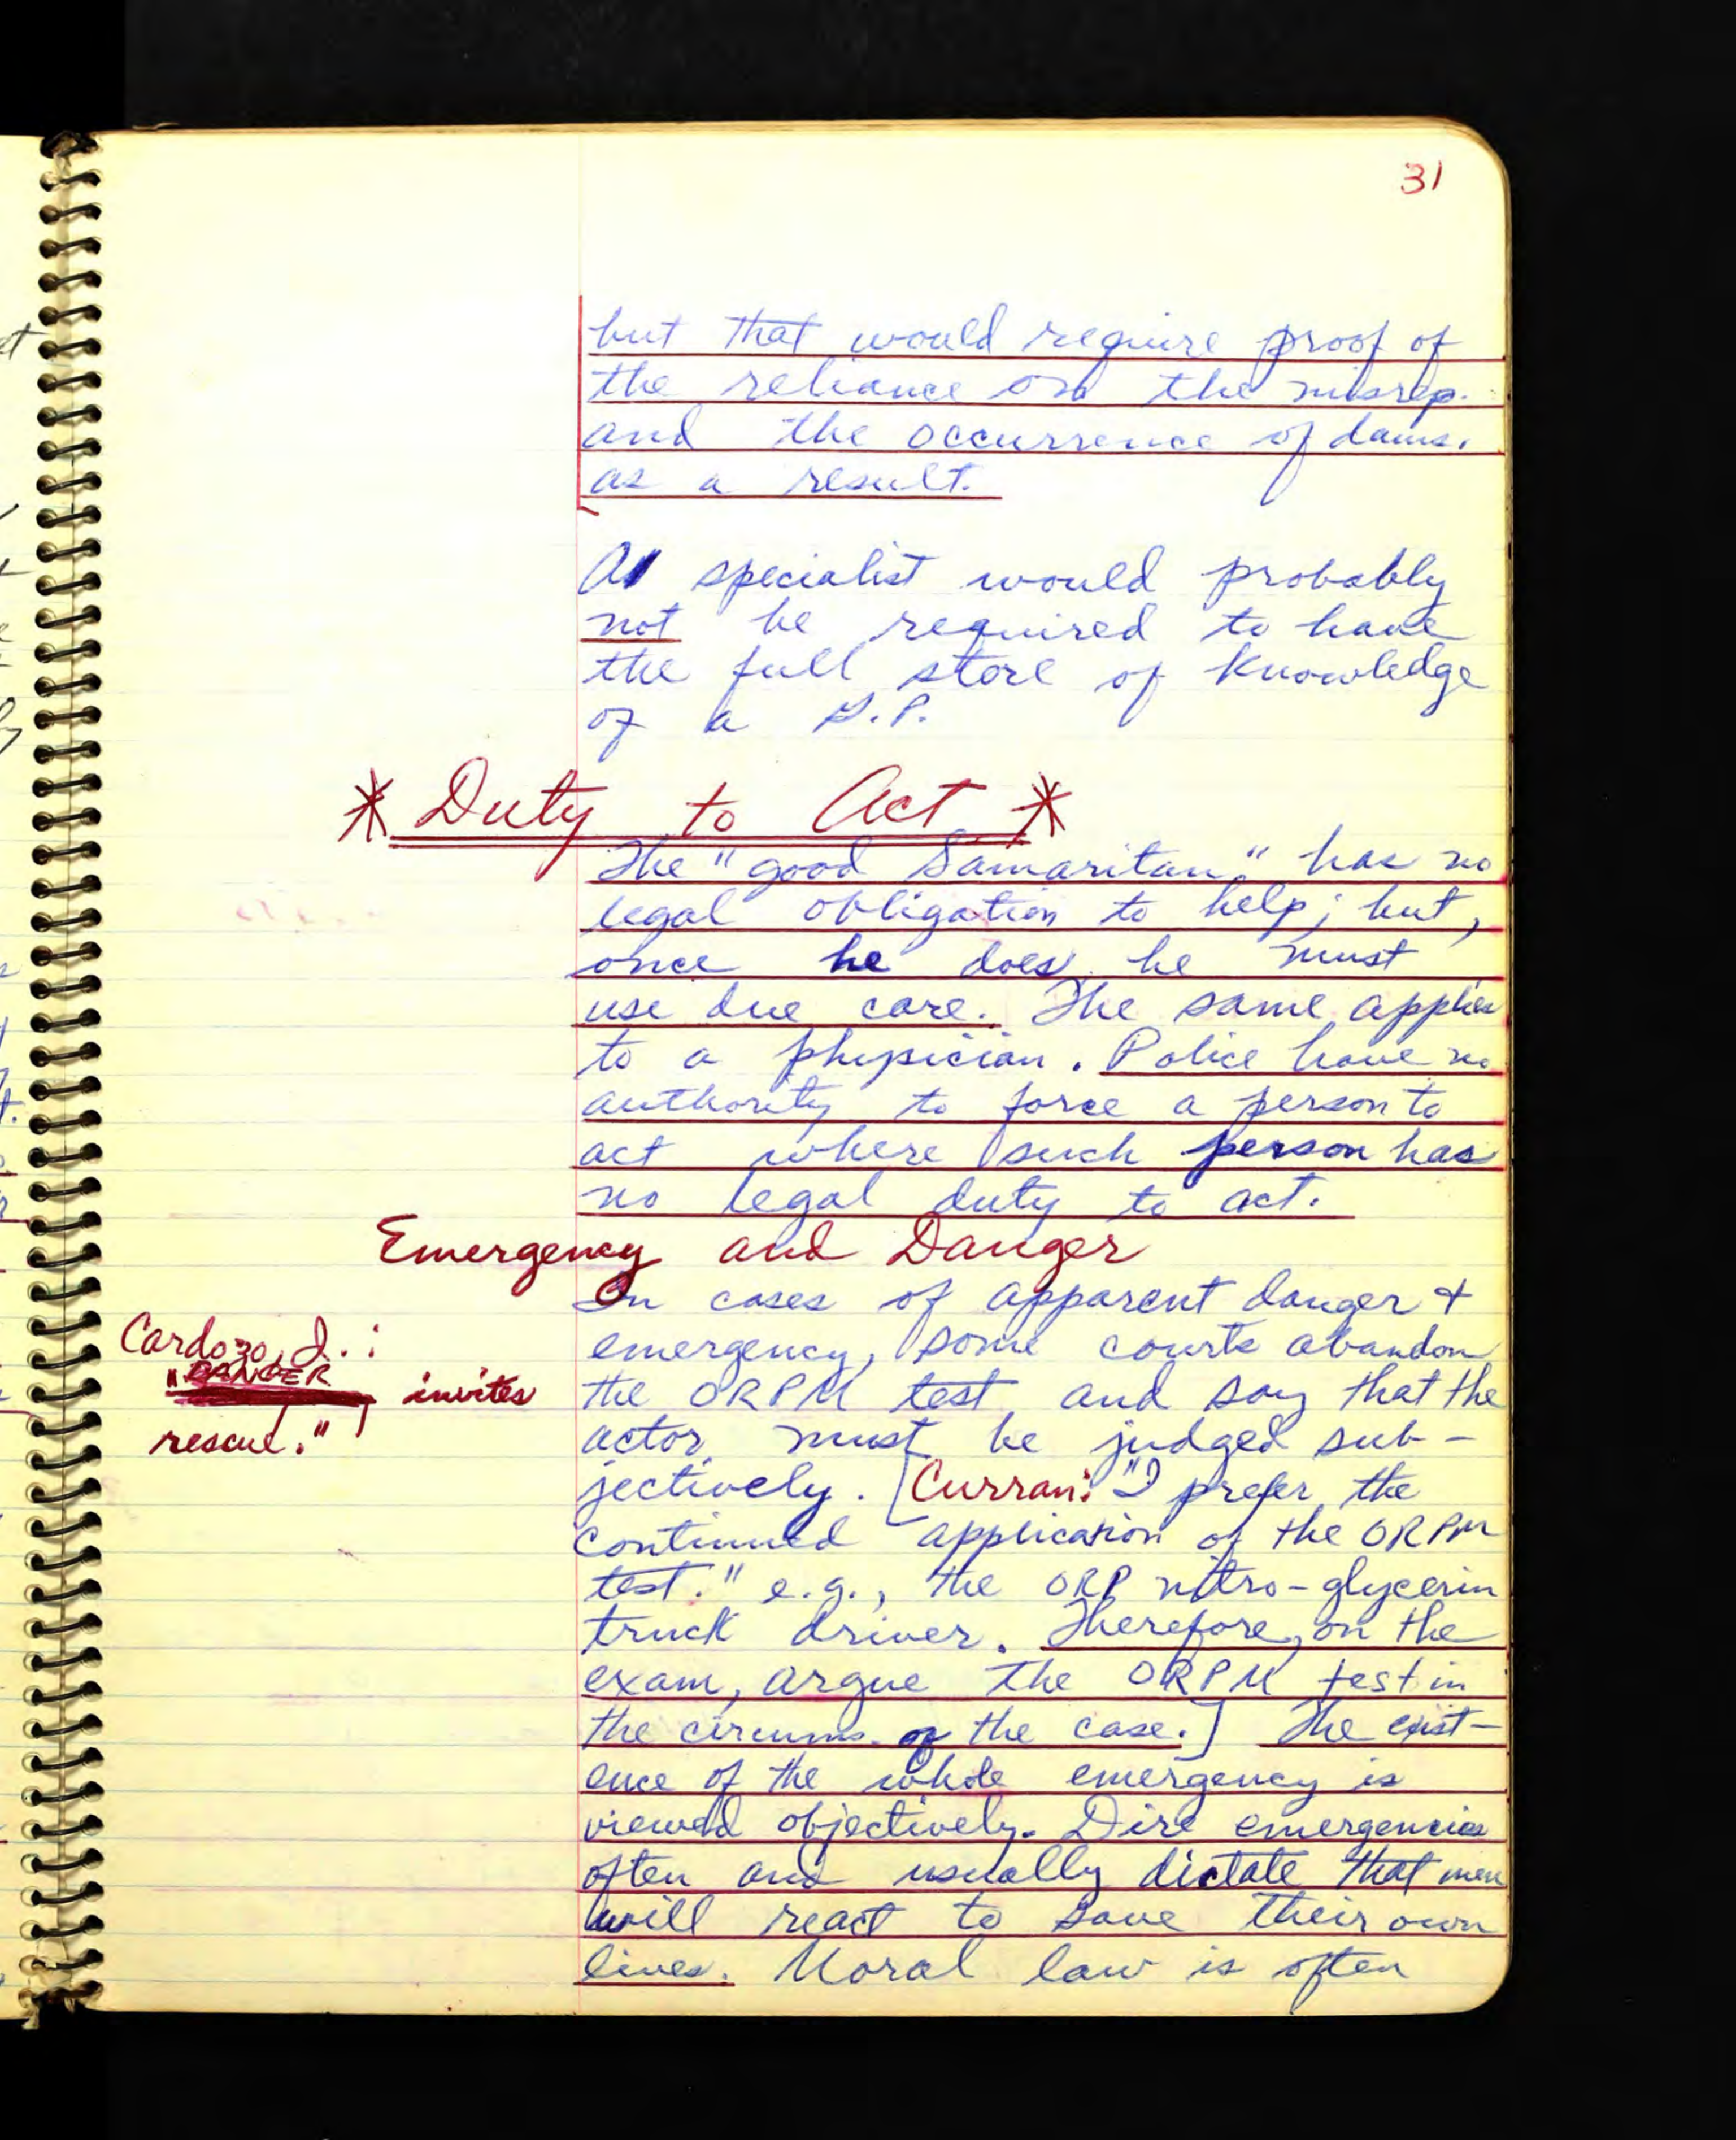 31
but that would require proof of
the reliance on the misrep.
and the occurrence of dams.
as a result.
A specialist would probably
not be required to have
the full store of knowledge
of a G.P.
* Duty to Act *
The "good Samaritan" has no
legal obligation to help; but,
once he does, he must
use due care. The same applies
to a physician. Police have no
authority to force a person to
act where such person has
no legal duty to act.
Emergency and Danger
In cases of apparent danger +
emergency, some courts abandon
the ORPM test and say that the
actor must be judged sub-
jectively. [Curran: "I prefer the
continued application of the ORPM
test." e.g., the ORP nitro-glycerin
truck driver. Therefore, on the
exam, argue the ORPM test in
the circums. of the case.] The exist-
ence of the whole emergency is
viewed objectively. Dire emergencies
often and usually dictate that men
will react to save their own
lives. Moral law is often
Cardozo, J.:
"DANGER
invites
rescue."